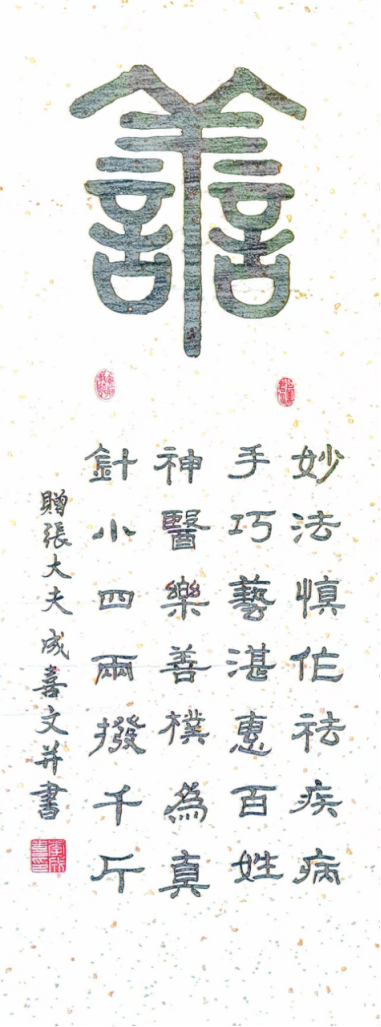 妙法慎作祛疾病
手巧藝湛惠百姓
神醫樂善樸為真
針小四兩撥千斤
贈張大夫 成喜文并書